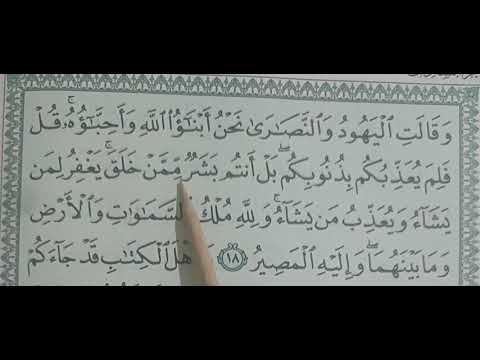 وَقَالَتِ ٱلۡيَهُودُ وَٱلنَّصَٰرَىٰ نَحۡنُ أَبۡنَٰٓؤُاْ ٱللَّهِ وَأَحِبَّٰٓؤُهُۥۚ قُلۡ
فَلِمَ يُعَذِّبُكُم بِذُنُوبِكُمۖ بَلۡ أَنتُم بَشَرٞ مِّمَّنۡ خَلَقَۚ يَغۡفِرُ لِمَن
يَشَآءُ وَيُعَذِّبُ مَن يَشَآءُۚ وَلِلَّهِ مُلۡكُ ٱلسَّمَٰوَٰتِ وَٱلۡأَرۡضِ
وَمَا بَيۡنَهُمَاۖ وَإِلَيۡهِ ٱلۡمَصِيرُ ١٨ هۡلَ ٱلۡكِتَٰبِ قَدۡ جَآءَكُمۡ